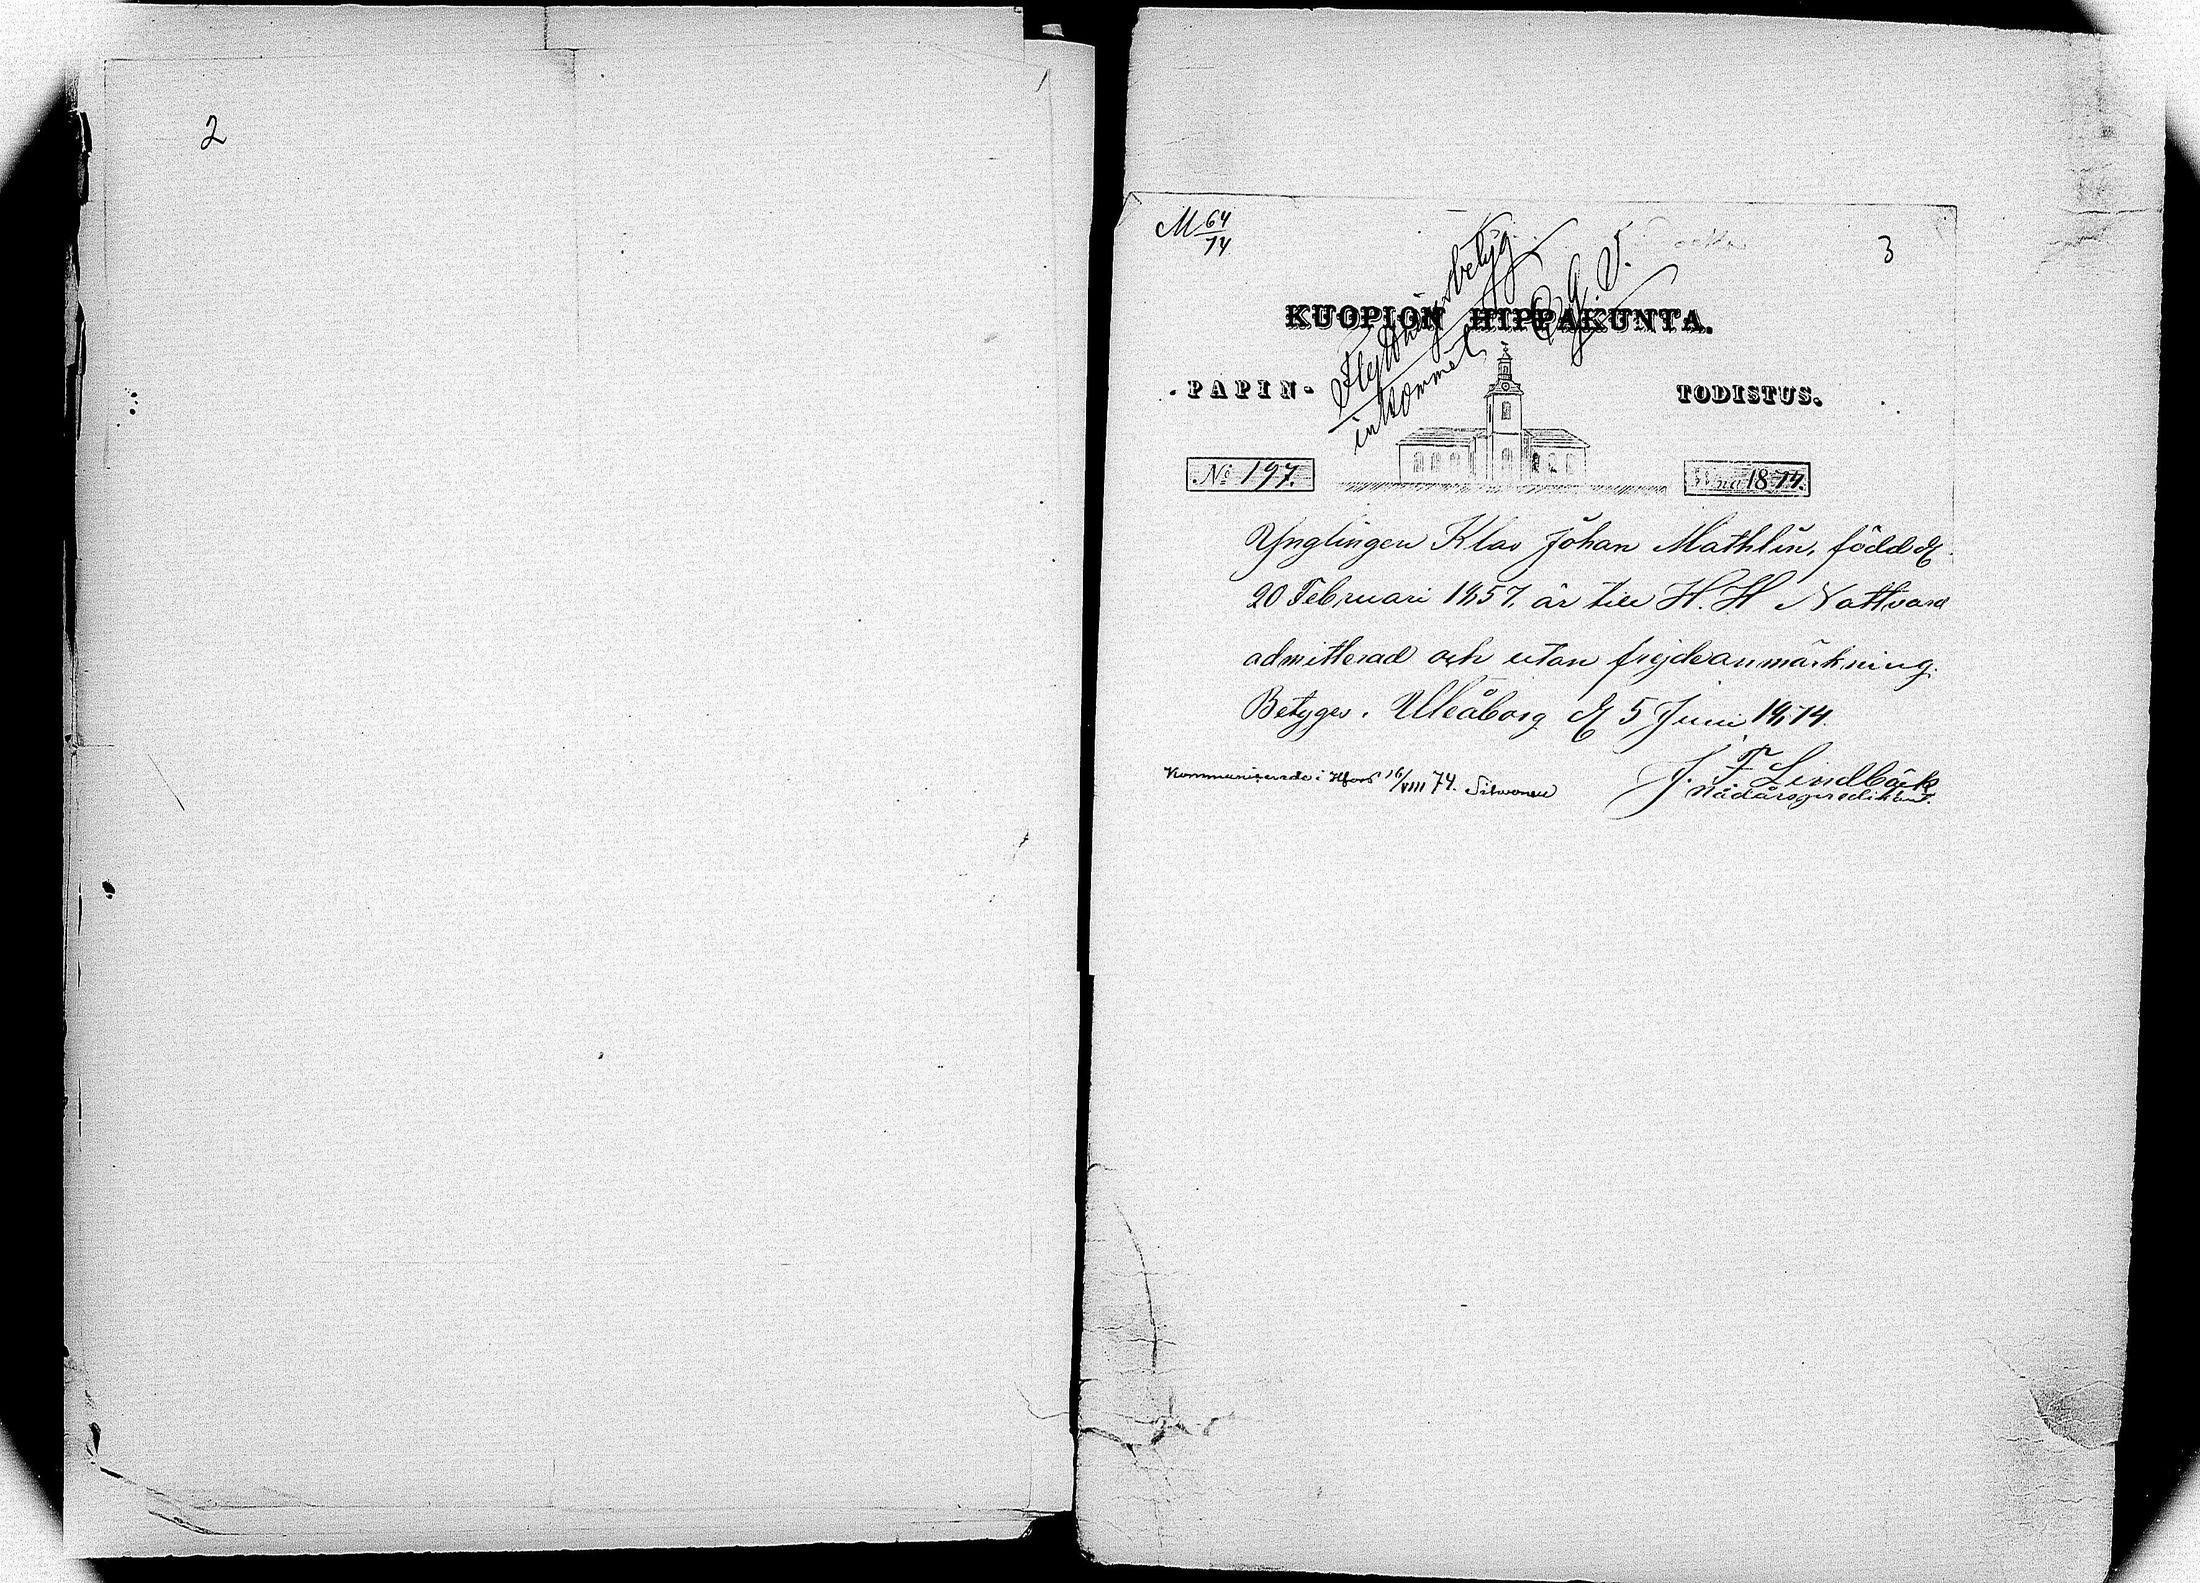 2
M 64/74
3
Flyttningsbetyg
inkommet
G. V.
KUOPION HIPPAKUNTA.
PAPIN-
TODISTUS.
No 197.
Wna 1874.
Ynglingen Klas Johan Mathlin, född d.
20 Februari 1857, är till H. H. Nattvard
admitterad och utan frejdeanmärkning.
Betygas. Uleåborg d 5 Juni 1874.
J. F. Lindbäck
Nådårspredikant.
Kommunicerade i Hfors 16/VIII 74. Silvonen